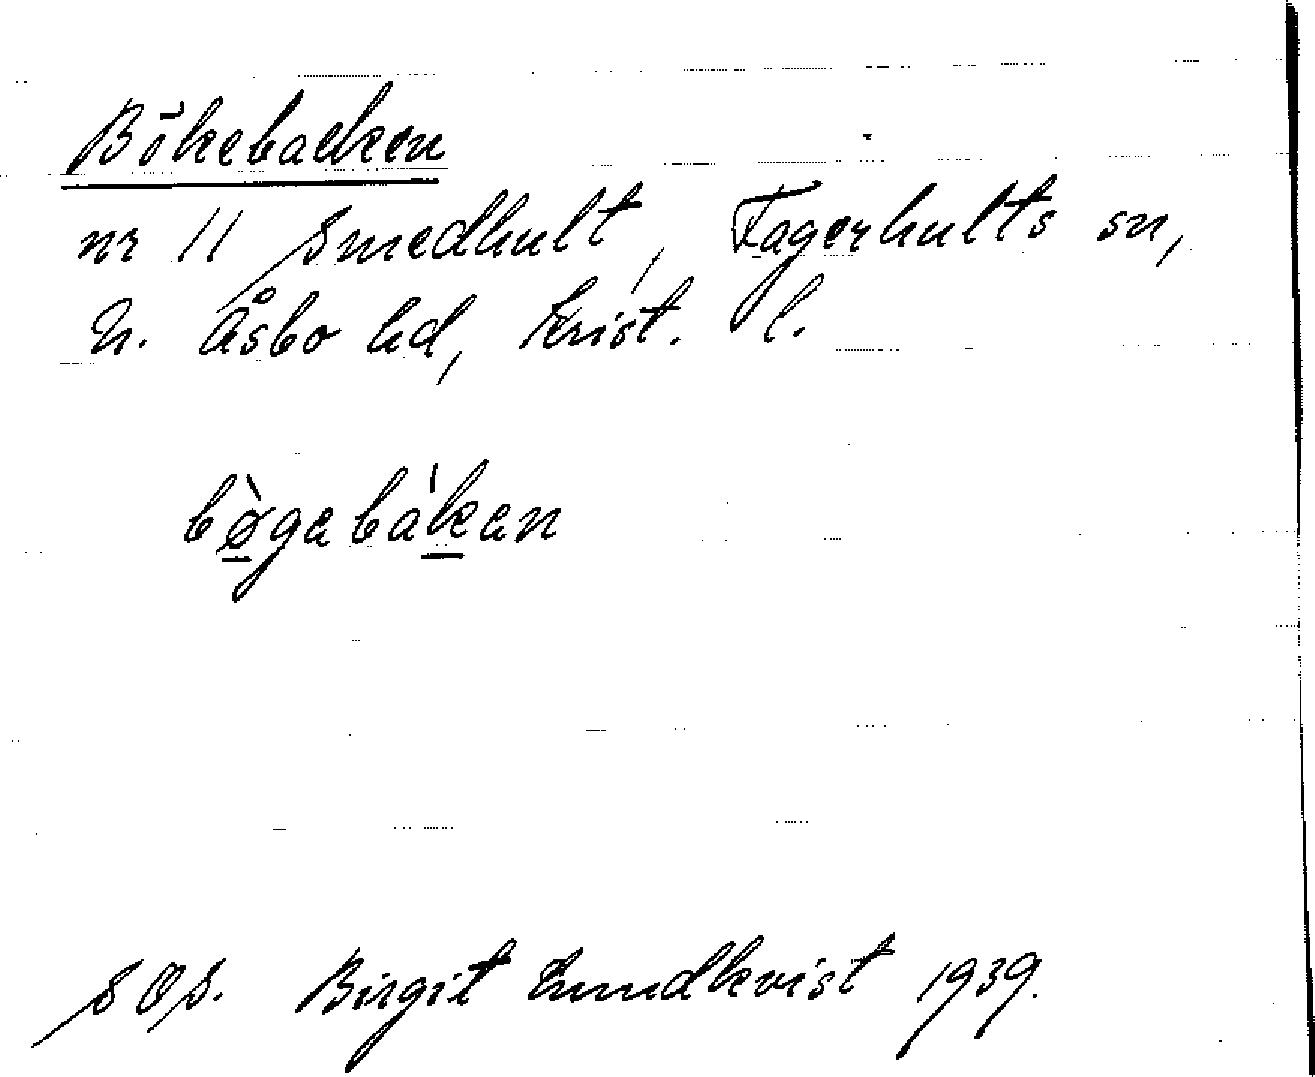 Bökebacken
nr 11 Smedhult, Fagerhults sn,
N. Åsbo hd, Krist. l.
bø̀gabák̲an
SOS. Birgit Lundkvist 1939.